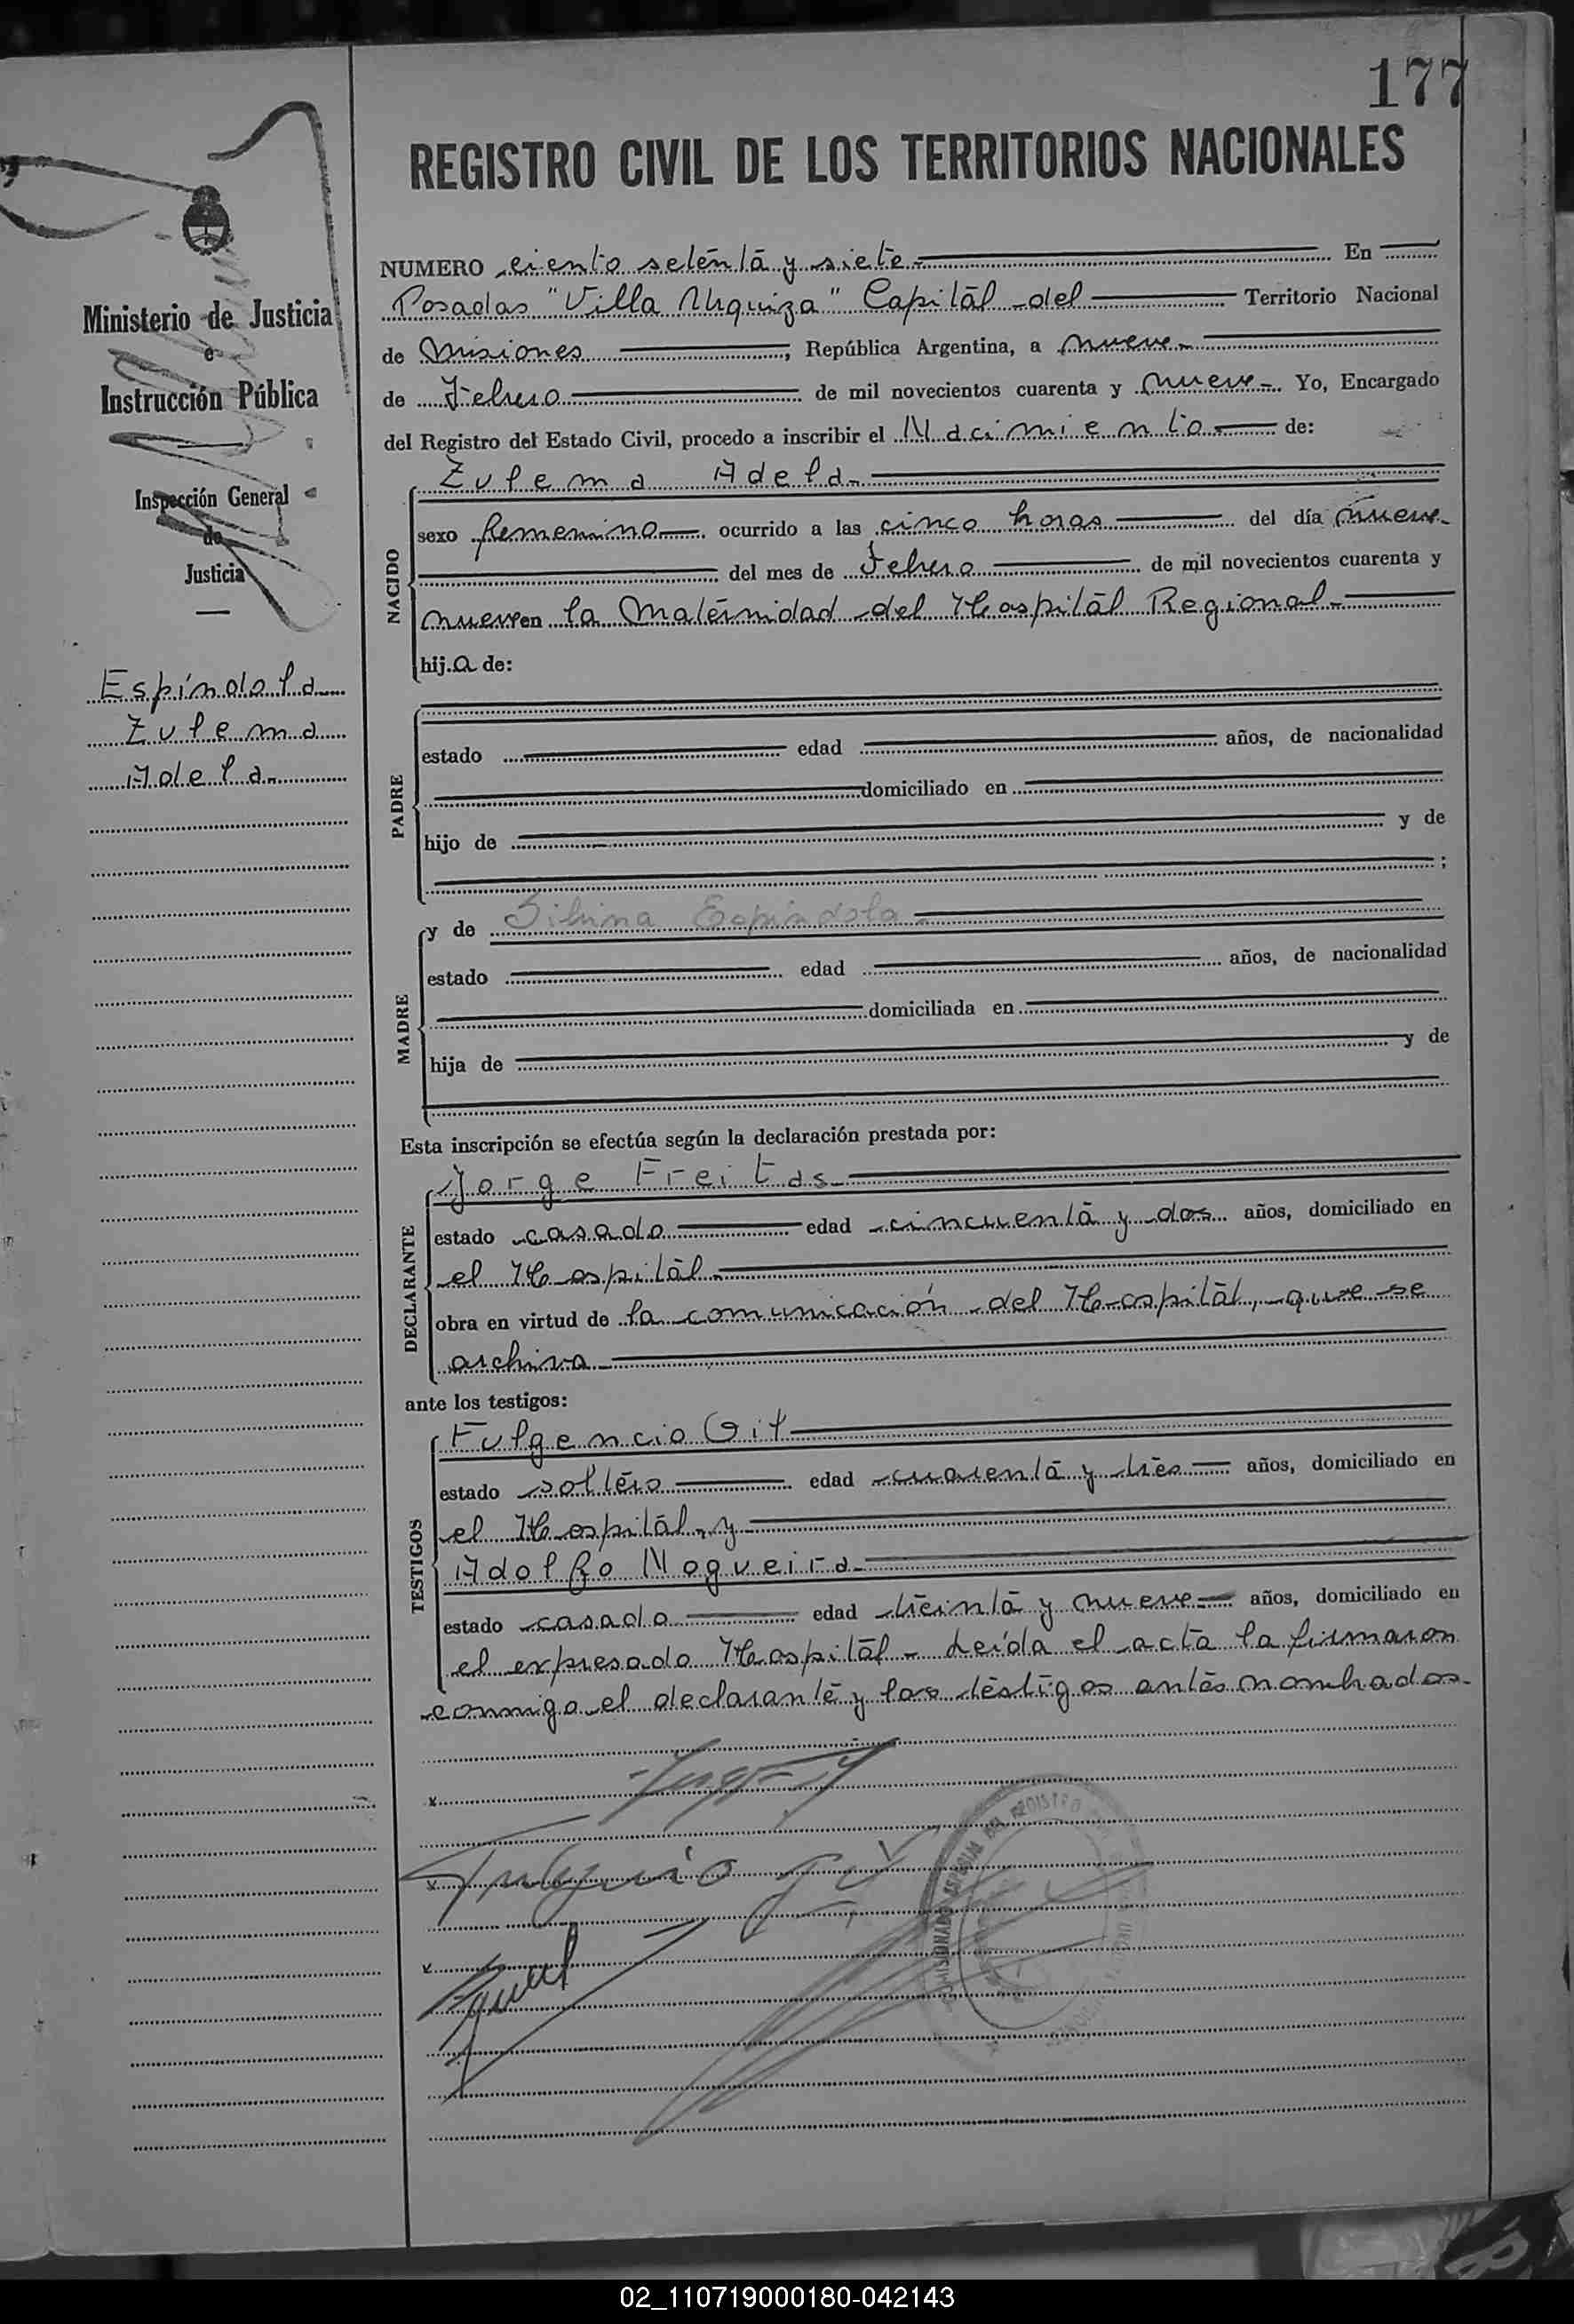 177
REGISTRO CIVIL DE LOS TERRITORIOS NACIONALES
Ministerio de Justicia
e
Instrucción Pública
Inspección General
de
Justicia
Espíndola
Zulema
Adela.
NUMERO ciento setenta y siete. En
Posadas "Villa Urquiza" Capital del Territorio Nacional
de Misiones, República Argentina, a nueve
de Febrero de mil novecientos cuarenta y nueve. Yo, Encargado
del Registro del Estado Civil, procedo a inscribir el Nacimiento de:
NACIDO
Zulema Adela.
sexo femenino ocurrido a las cinco horas del día nueve
del mes de Febrero de mil novecientos cuarenta y
nueve en la Maternidad del Hospital Regional
hij.a de:
PADRE
estado edad años, de nacionalidad
domiciliado en
hijo de y de
;
MADRE
y de Silvina Espíndola
estado edad años, de nacionalidad
domiciliada en
hija de y de
Esta inscripción se efectúa según la declaración prestada por:
DECLARANTE
Jorge Freitas
estado casado edad cincuenta y dos años, domiciliado en
el Hospital
obra en virtud de la comunicación del Hospital, que se
archiva
ante los testigos:
TESTIGOS
Fulgencio Gil
estado soltero edad cuarenta y tres años, domiciliado en
el Hospital, y
Adolfo Nogueira
estado casado edad treinta y nueve años, domiciliado en
el expresado Hospital - Leída el acta la firmaron
conmigo el declarante y los testigos antes nombrados
Fulgencio Gil
02_110719000180-042143